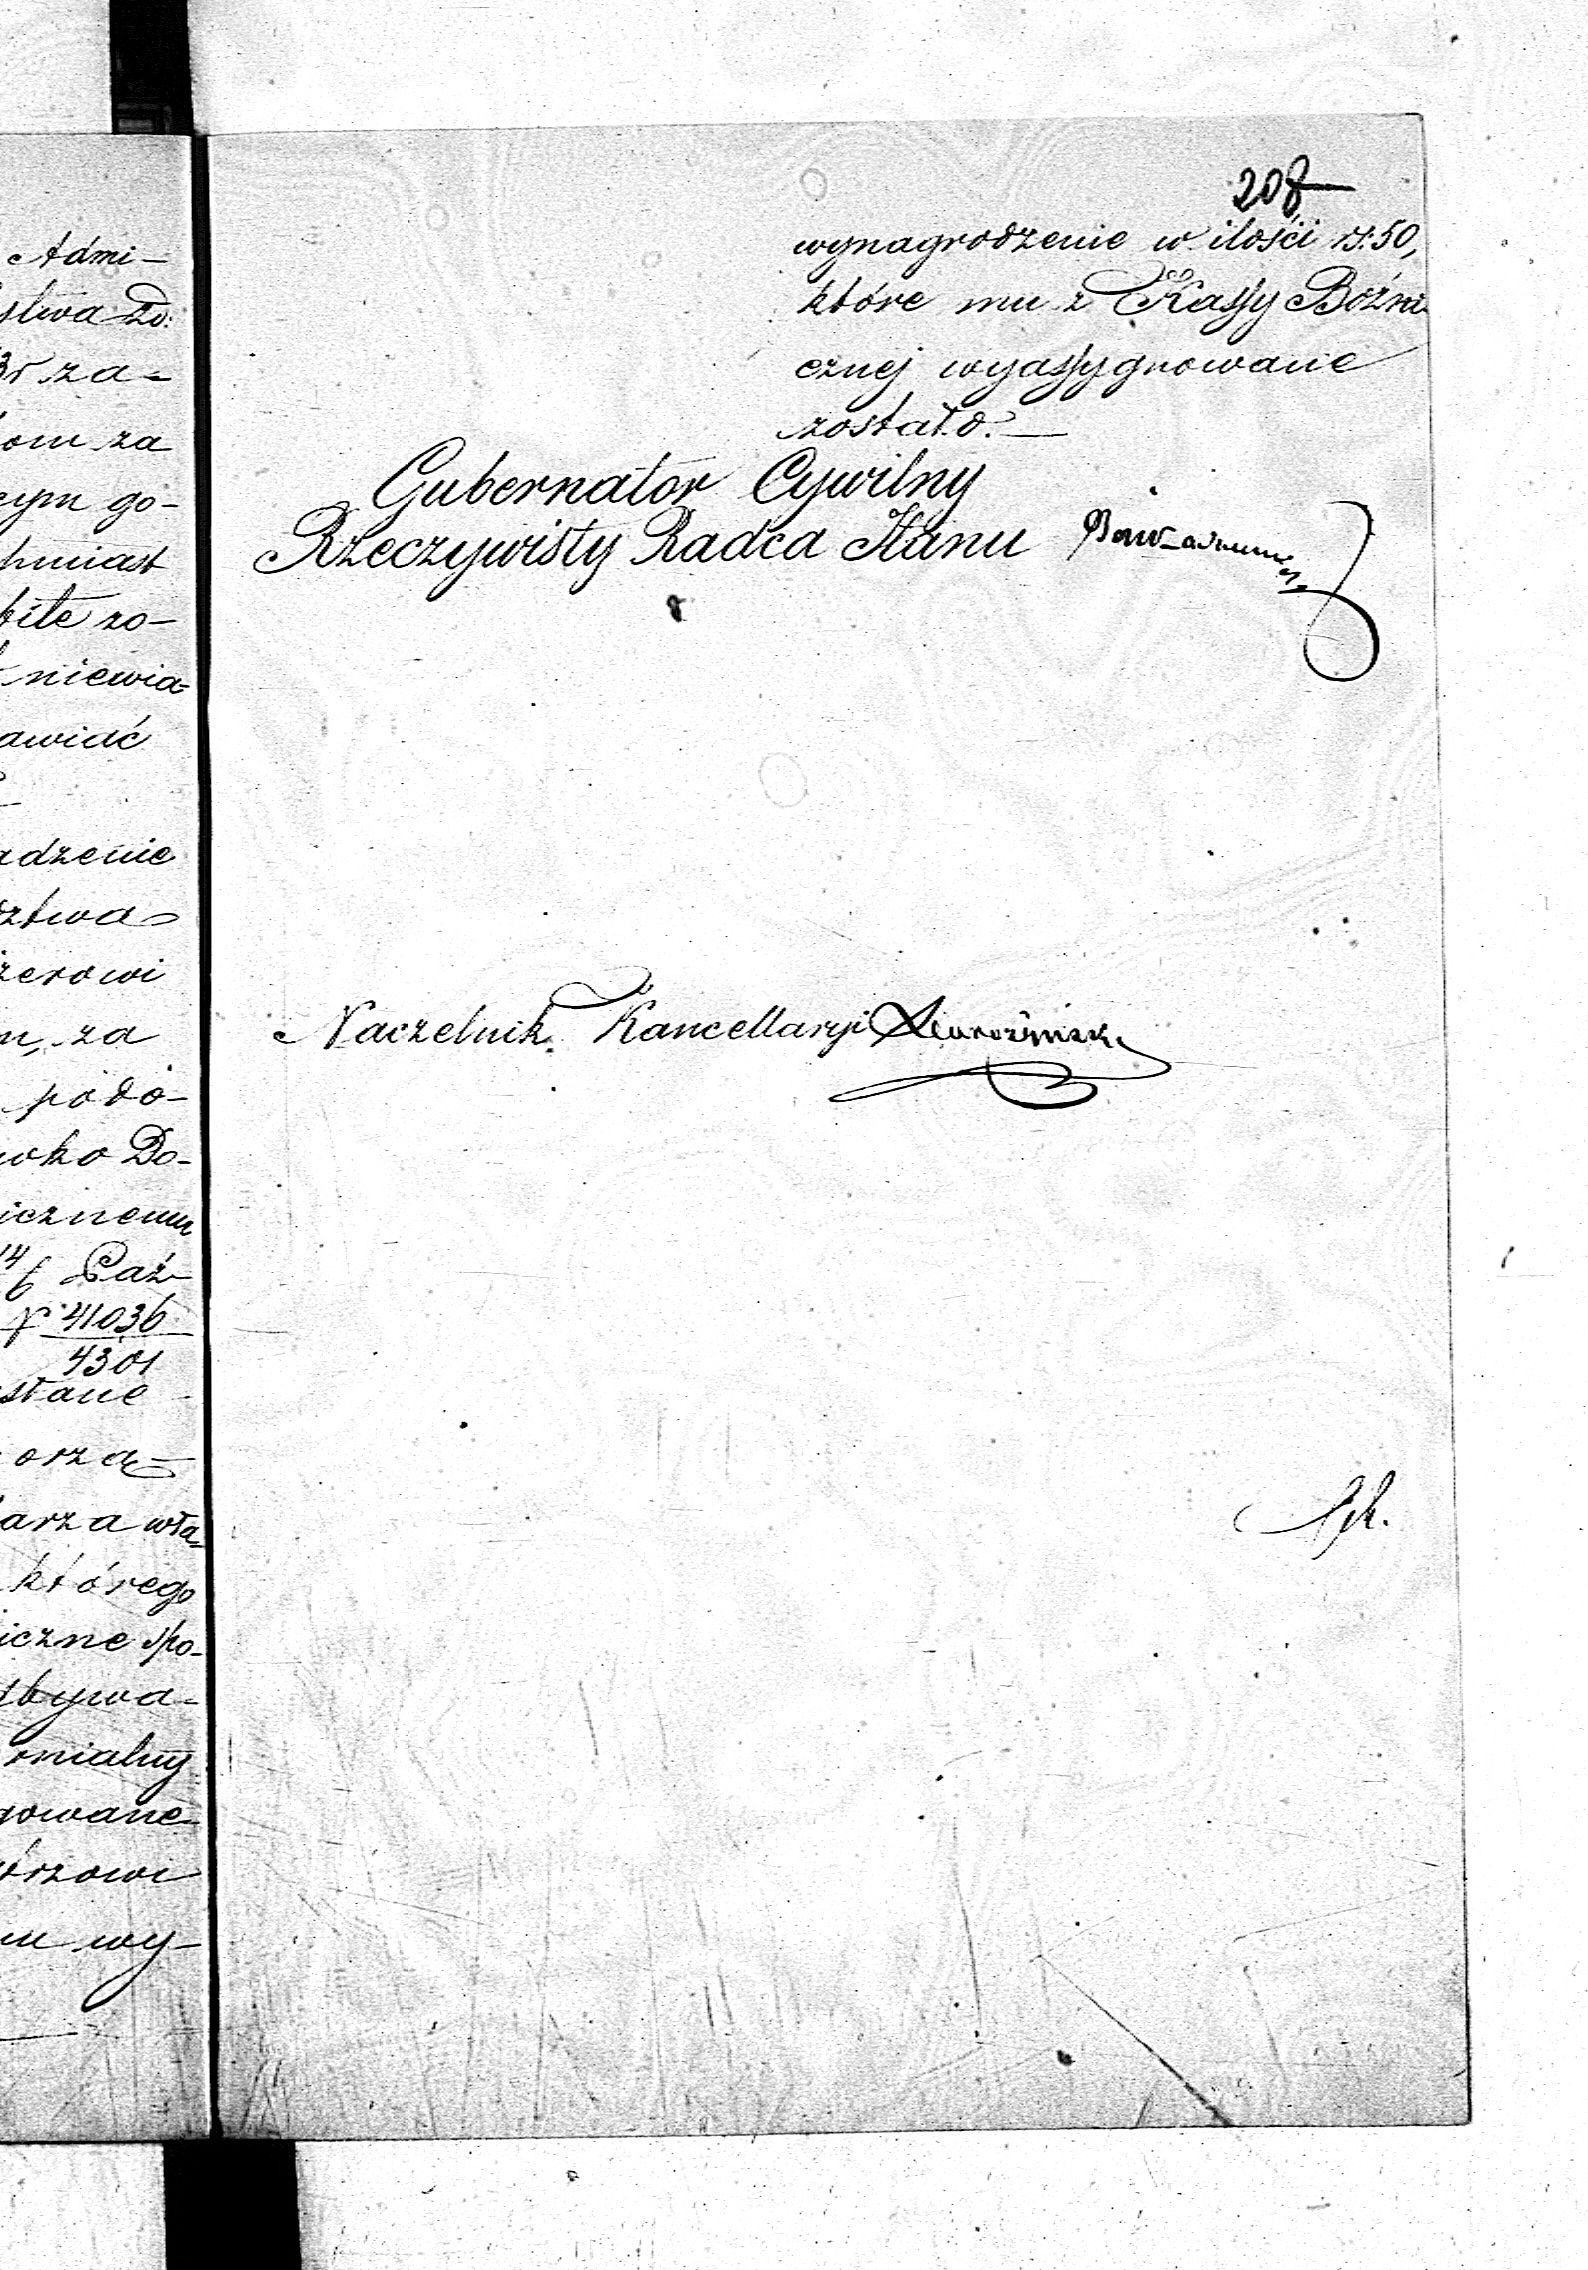 Admi-
stwa Du:
3r za-
om za
cym go-
hmiast
bite zo-
niewia-
awiać
adzenie
ztwa
zerowi
n, za
podo-
wko Do-
icznemu
14/6 Paź-
N 41036
4301
stane
orzą-
arza wła-
którego
iczne spo-
bywa-
mialny
gowane
orzowi
m wy-
208
wynagrodzenie w ilości rs: 50,
które mu z Kassy Bóźni
cznej wyassygnowane
zostało.—
Gubernator Cywilny
Rzeczywisty Radca Stanu
Naczelnik Kancellaryi